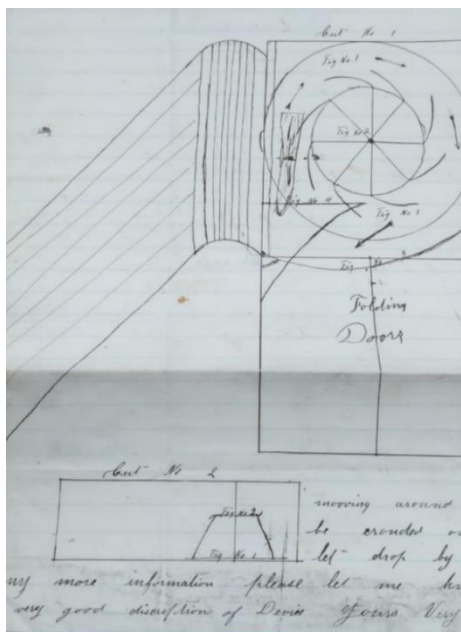 Cut No 1
Fig No 1
Fig No 2
Fig No 4
Fig No 3
Fig
Folding
Doors
Cut No 2
mooving around
Fig No 2
be crouded
Fig No 1
let drop by
more information please let me
very good discription of Devise Yours Very